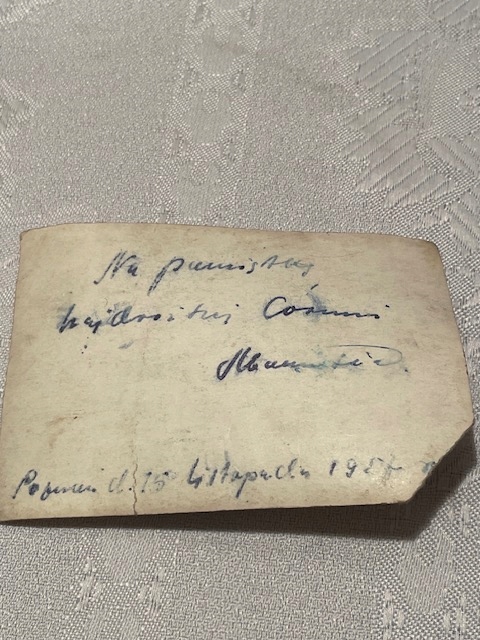 Na pamiątkę
najdroższej Córuni
Mamusia.
Poznań d. 15 Listopada 1957 r